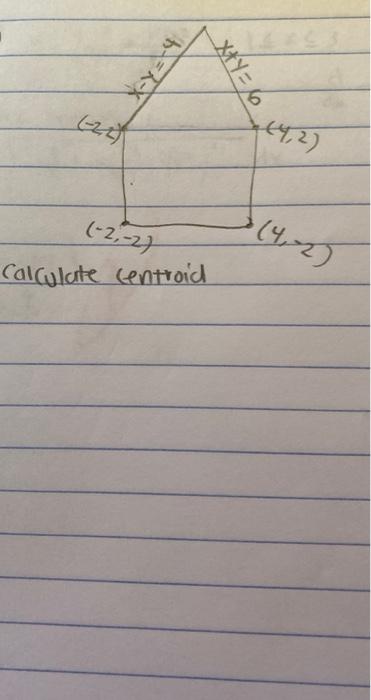 x-y=-4
x+y=6
(-2,2)
(4,2)
(-2,-2)
(4,-2)
Calculate centroid